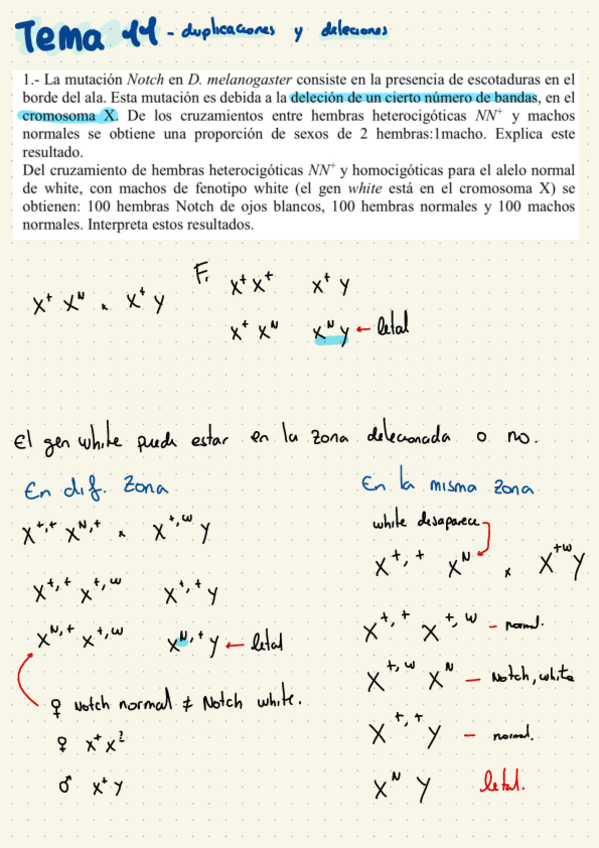 Tema 11 - duplicaciones y deleciones
1.- La mutación Notch en D. melanogaster consiste en la presencia de escotaduras en el
borde del ala. Esta mutación es debida a la deleción de un cierto número de bandas, en el
cromosoma X. De los cruzamientos entre hembras heterocigóticas NN⁺ y machos
normales se obtiene una proporción de sexos de 2 hembras:1macho. Explica este
resultado.
Del cruzamiento de hembras heterocigóticas NN⁺ y homocigóticas para el alelo normal
de white, con machos de fenotipo white (el gen white está en el cromosoma X) se
obtienen: 100 hembras Notch de ojos blancos, 100 hembras normales y 100 machos
normales. Interpreta estos resultados.
X⁺ Xᴺ x X⁺ Y
F₁ X⁺X⁺ X⁺ Y
X⁺ Xᴺ Xᴺ Y ← letal
El gen white puede estar en la zona delecionada o no.
En dif. zona
X⁺,⁺ Xᴺ,⁺ x X⁺,ʷ Y
X⁺,⁺ X⁺,ʷ X⁺,⁺ Y
Xᴺ,⁺ X⁺,ʷ Xᴺ,⁺ Y ← letal
♀ Notch normal ≠ Notch white.
♀ X⁺ X?
♂ X⁺ Y
En la misma zona
white desaparece
X⁺,⁺ Xᴺ x X⁺ʷ Y
X⁺,⁺ X⁺,ʷ - normal.
X⁺,ʷ Xᴺ - Notch, white
X⁺,⁺ Y - normal.
Xᴺ Y letal.